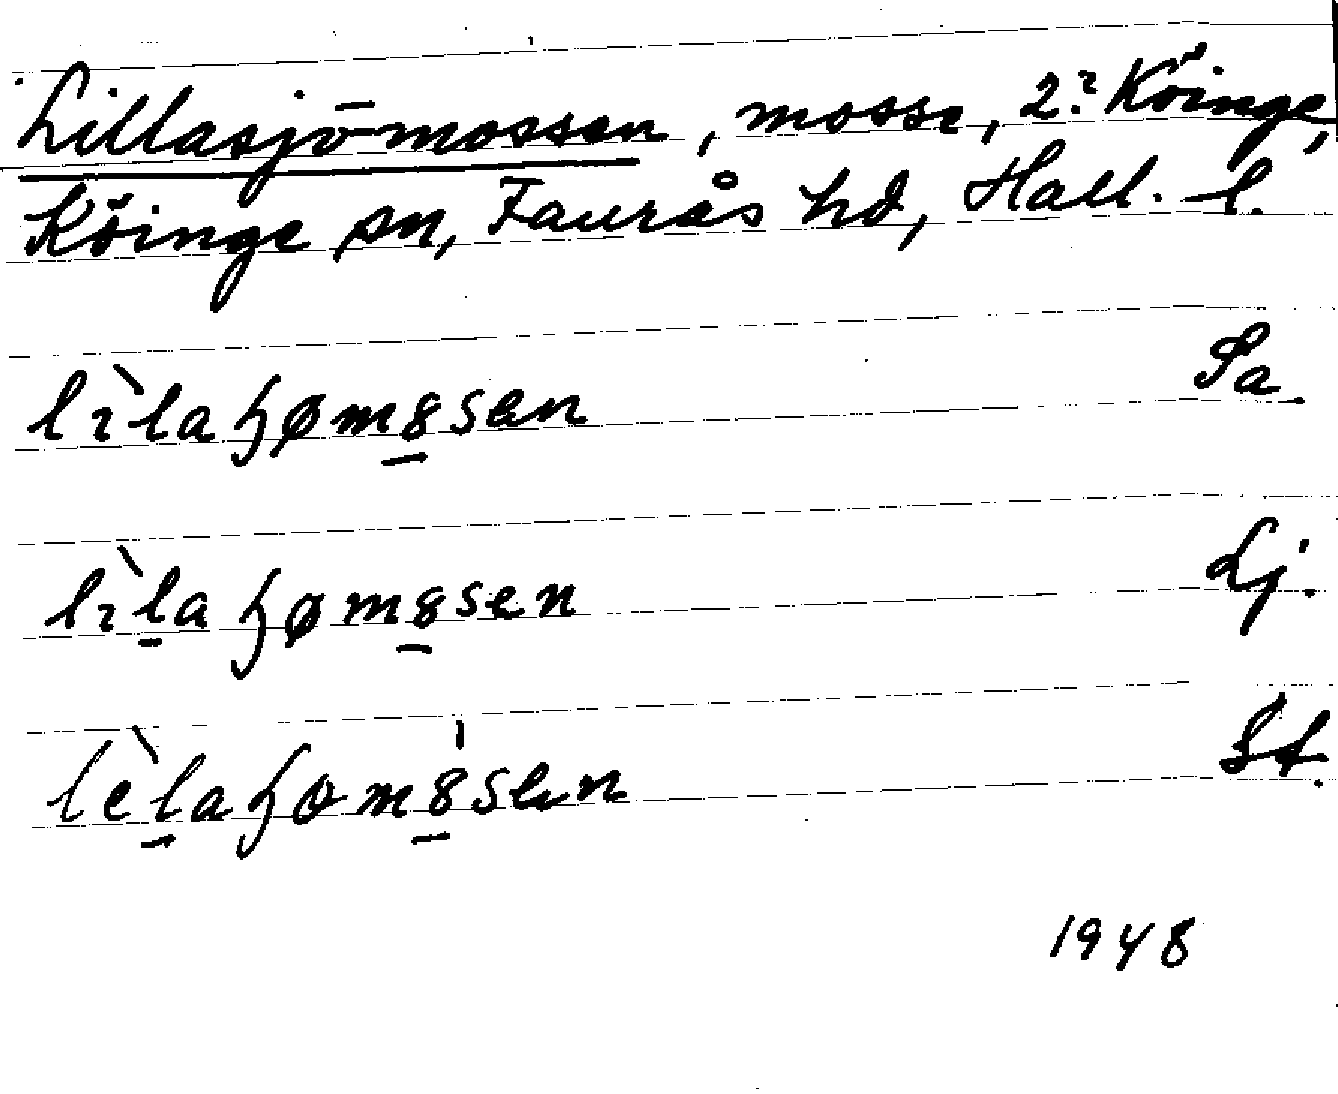 Lillasjömossen, mosse, 2:2 Köinge,
Köinge sn, Faurås hd, Hall. l.
lìlaɧømꞷsen Sa.
lìlaɧømꞷsen Lj.
lèlaɧømꞷsen St.
1948